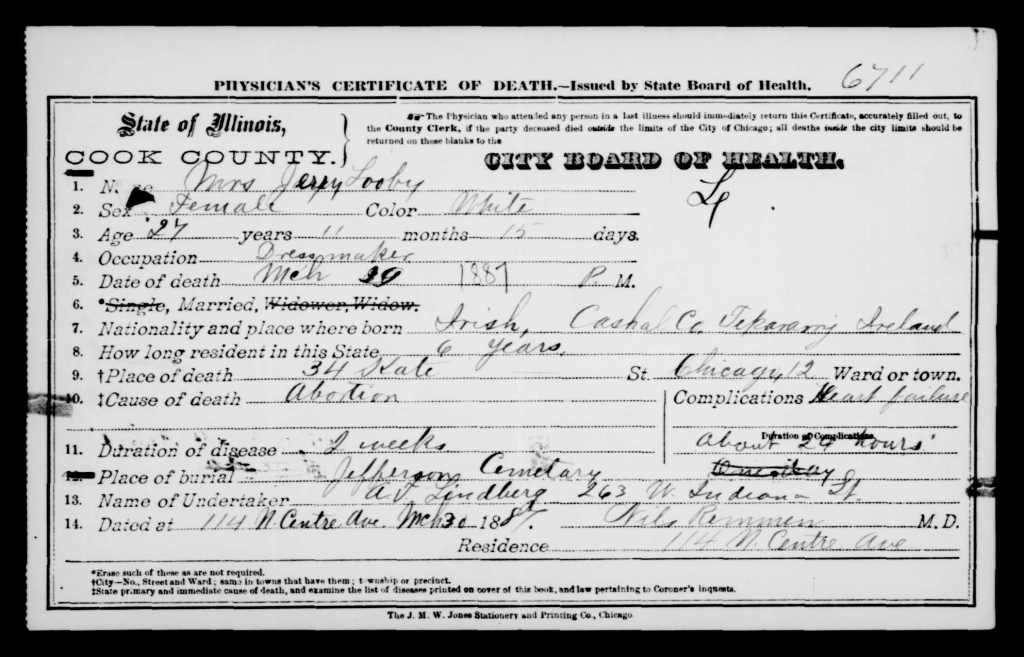 PHYSICIAN'S CERTIFICATE OF DEATH.—Issued by State Board of Health. 6711
State of Illinois,
COOK COUNTY.
☞ The Physician who attended any person in a last illness should immediately return this Certificate, accurately filled out, to
the County Clerk, if the party deceased died outside the limits of the City of Chicago; all deaths inside the city limits should be
returned on these blanks to the
CITY BOARD OF HEALTH.
1. Name Mrs Jerry Looby
2. Sex Female Color White
3. Age 27 years 11 months 15 days.
4. Occupation Dressmaker
5. Date of death Mch 29 1887 P. M.
6. *Single, Married, Widower, Widow.
7. Nationality and place where born Irish, Cashal Co. Tiparary Ireland
8. How long resident in this State 6 years.
9. †Place of death 34 Kate St. Chicago, 12 Ward or town.
10. ‡Cause of death Abortion Complications Heart failure
Duration of Complications about 24 hours
11. Duration of disease 2 weeks One day
12. Place of burial Jefferson Cemetary
13. Name of Undertaker A. J. Lindberg 263 W. Indiana St.
14. Dated at 114 N. Centre Ave. Mch 30 1887. Nils Remmen M. D.
Residence 114 N. Centre Ave
*Erase such of these as are not required.
†City—No., Street and Ward; same in towns that have them; township or precinct.
‡State primary and immediate cause of death, and examine the list of diseases printed on cover of this book, and law pertaining to Coroner's inquests.
The J. M. W. Jones Stationery and Printing Co., Chicago